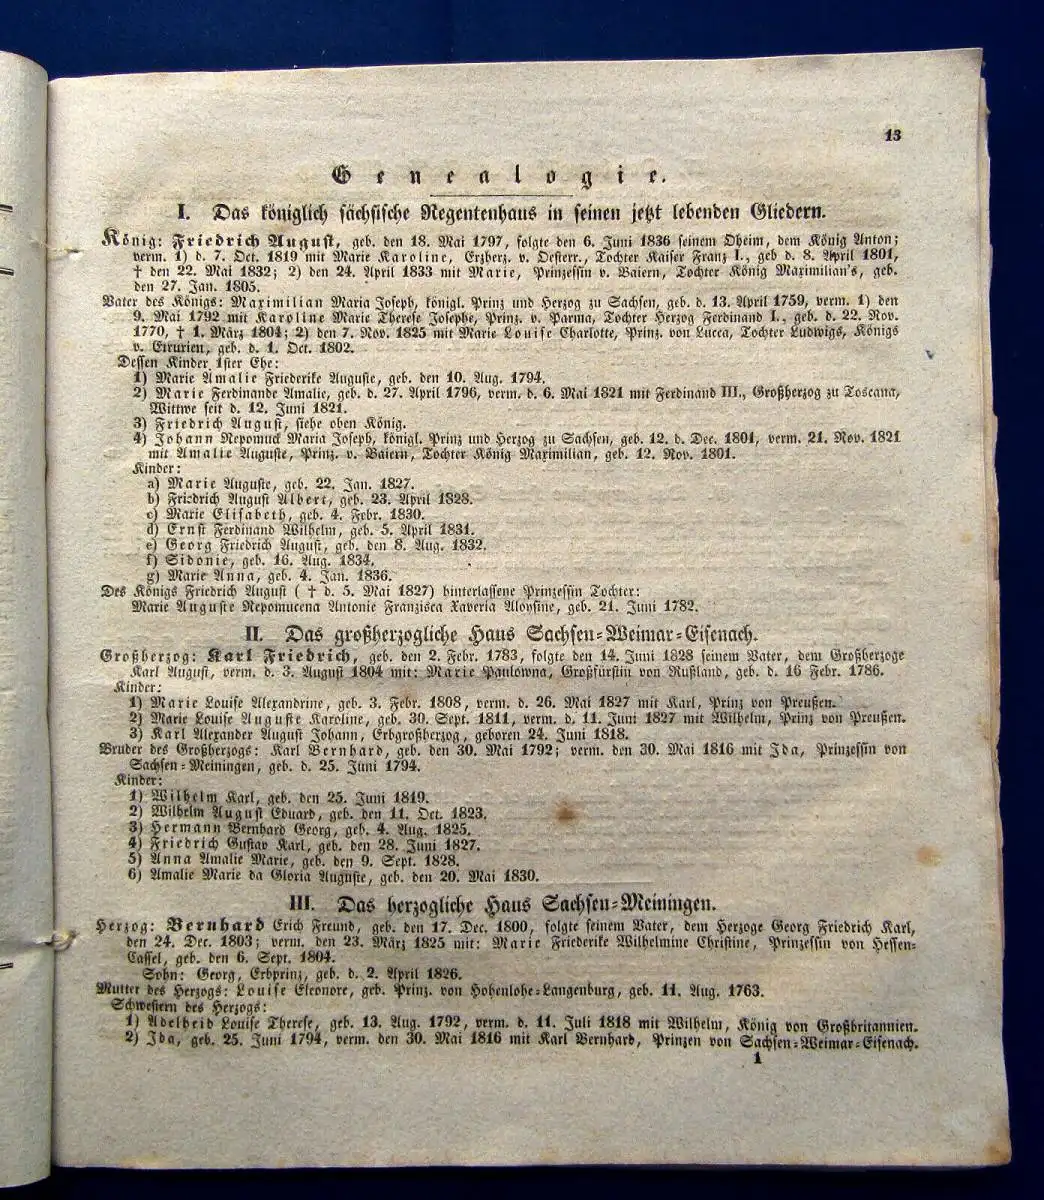 13
Genealogie.
I. Das königlich sächsische Regentenhaus in seinen jetzt lebenden Gliedern.
König: Friedrich August, geb. den 18. Mai 1797, folgte den 6. Juni 1836 seinem Oheim, dem König Anton;
verm. 1) d. 7. Oct. 1819 mit Marie Karoline, Erzherz. v. Oesterr., Tochter Kaiser Franz I., geb d. 8. April 1801,
† den 22. Mai 1832; 2) den 24. April 1833 mit Marie, Prinzessin v. Baiern, Tochter König Maximilian's, geb.
den 27. Jan. 1805.
Vater des Königs: Maximilian Maria Joseph, königl. Prinz und Herzog zu Sachsen, geb. d. 13. April 1759, verm. 1) den
9. Mai 1792 mit Karoline Marie Therese Josephe, Prinz. v. Parma, Tochter Herzog Ferdinand I., geb. d. 22. Nov.
1770, † 1. März 1804; 2) den 7. Nov. 1825 mit Marie Louise Charlotte, Prinz. von Lucca, Tochter Ludwigs, Königs
v. Etrurien, geb. d. 1. Oct. 1802.
Dessen Kinder 1ster Ehe:
1) Marie Amalie Friederike Auguste, geb. den 10. Aug. 1794.
2) Marie Ferdinande Amalie, geb. d. 27. April 1796, verm. d. 6. Mai 1821 mit Ferdinand III., Großherzog zu Toscana,
Wittwe seit d. 12. Juni 1821.
3) Friedrich August, siehe oben König.
4) Johann Nepomuck Maria Joseph, königl. Prinz und Herzog zu Sachsen, geb. 12. d. Dec. 1801, verm. 21. Nov. 1821
mit Amalie Auguste, Prinz. v. Baiern, Tochter König Maximilian, geb. 12. Nov. 1801.
Kinder:
a) Marie Auguste, geb. 22. Jan. 1827.
b) Friedrich August Albert, geb. 23. April 1828.
c) Marie Elisabeth, geb. 4. Febr. 1830.
d) Ernst Ferdinand Wilhelm, geb. 5. April 1831.
e) Georg Friedrich August, geb. den 8. Aug. 1832.
f) Sidonie, geb. 16. Aug. 1834.
g) Marie Anna, geb. 4. Jan. 1836.
Des Königs Friedrich August († d. 5. Mai 1827) hinterlassene Prinzessin Tochter:
Marie Auguste Nepomucena Antonie Franzisca Xaveria Aloysine, geb. 21. Juni 1782.
II. Das großherzogliche Haus Sachsen-Weimar-Eisenach.
Großherzog: Karl Friedrich, geb. den 2. Febr. 1783, folgte den 14. Juni 1828 seinem Vater, dem Großherzoge
Karl August, verm. d. 3. August 1804 mit: Marie Paulowna, Großfürstin von Rußland, geb. d. 16 Febr. 1786.
Kinder:
1) Marie Louise Alexandrine, geb. 3. Febr. 1808, verm. d. 26. Mai 1827 mit Karl, Prinz von Preußen.
2) Marie Louise Auguste Karoline, geb. 30. Sept. 1811, verm. d. 11. Juni 1827 mit Wilhelm, Prinz von Preußen.
3) Karl Alexander August Johann, Erbgroßherzog, geboren 24. Juni 1818.
Bruder des Großherzogs: Karl Bernhard, geb. den 30. Mai 1792; verm. den 30. Mai 1816 mit Ida, Prinzessin von
Sachsen-Meiningen, geb. d. 25. Juni 1794.
Kinder:
1) Wilhelm Karl, geb. den 25. Juni 1819.
2) Wilhelm August Eduard, geb. den 11. Oct. 1823.
3) Hermann Bernhard Georg, geb. 4. Aug. 1825.
4) Friedrich Gustav Karl, geb. den 28. Juni 1827.
5) Anna Amalie Marie, geb. den 9. Sept. 1828.
6) Amalie Marie da Gloria Auguste, geb. den 20. Mai 1830.
III. Das herzogliche Haus Sachsen-Meiningen.
Herzog: Bernhard Erich Freund, geb. den 17. Dec. 1800, folgte seinem Vater, dem Herzoge Georg Friedrich Karl,
den 24. Dec. 1803; verm. den 23. März 1825 mit: Marie Friederike Wilhelmine Christine, Prinzessin von Hessen-
Cassel, geb. den 6. Sept. 1804.
Sohn: Georg, Erbprinz, geb. d. 2. April 1826.
Mutter des Herzogs: Louise Eleonore, geb. Prinz. von Hohenlohe-Langenburg, geb. 11. Aug. 1763.
Schwestern des Herzogs:
1) Adelheid Louise Therese, geb. 13. Aug. 1792, verm. d. 11. Juli 1818 mit Wilhelm, König von Großbritannien.
2) Ida, geb. 25. Juni 1794, verm. den 30. Mai 1816 mit Karl Bernhard, Prinzen von Sachsen-Weimar-Eisenach.
1